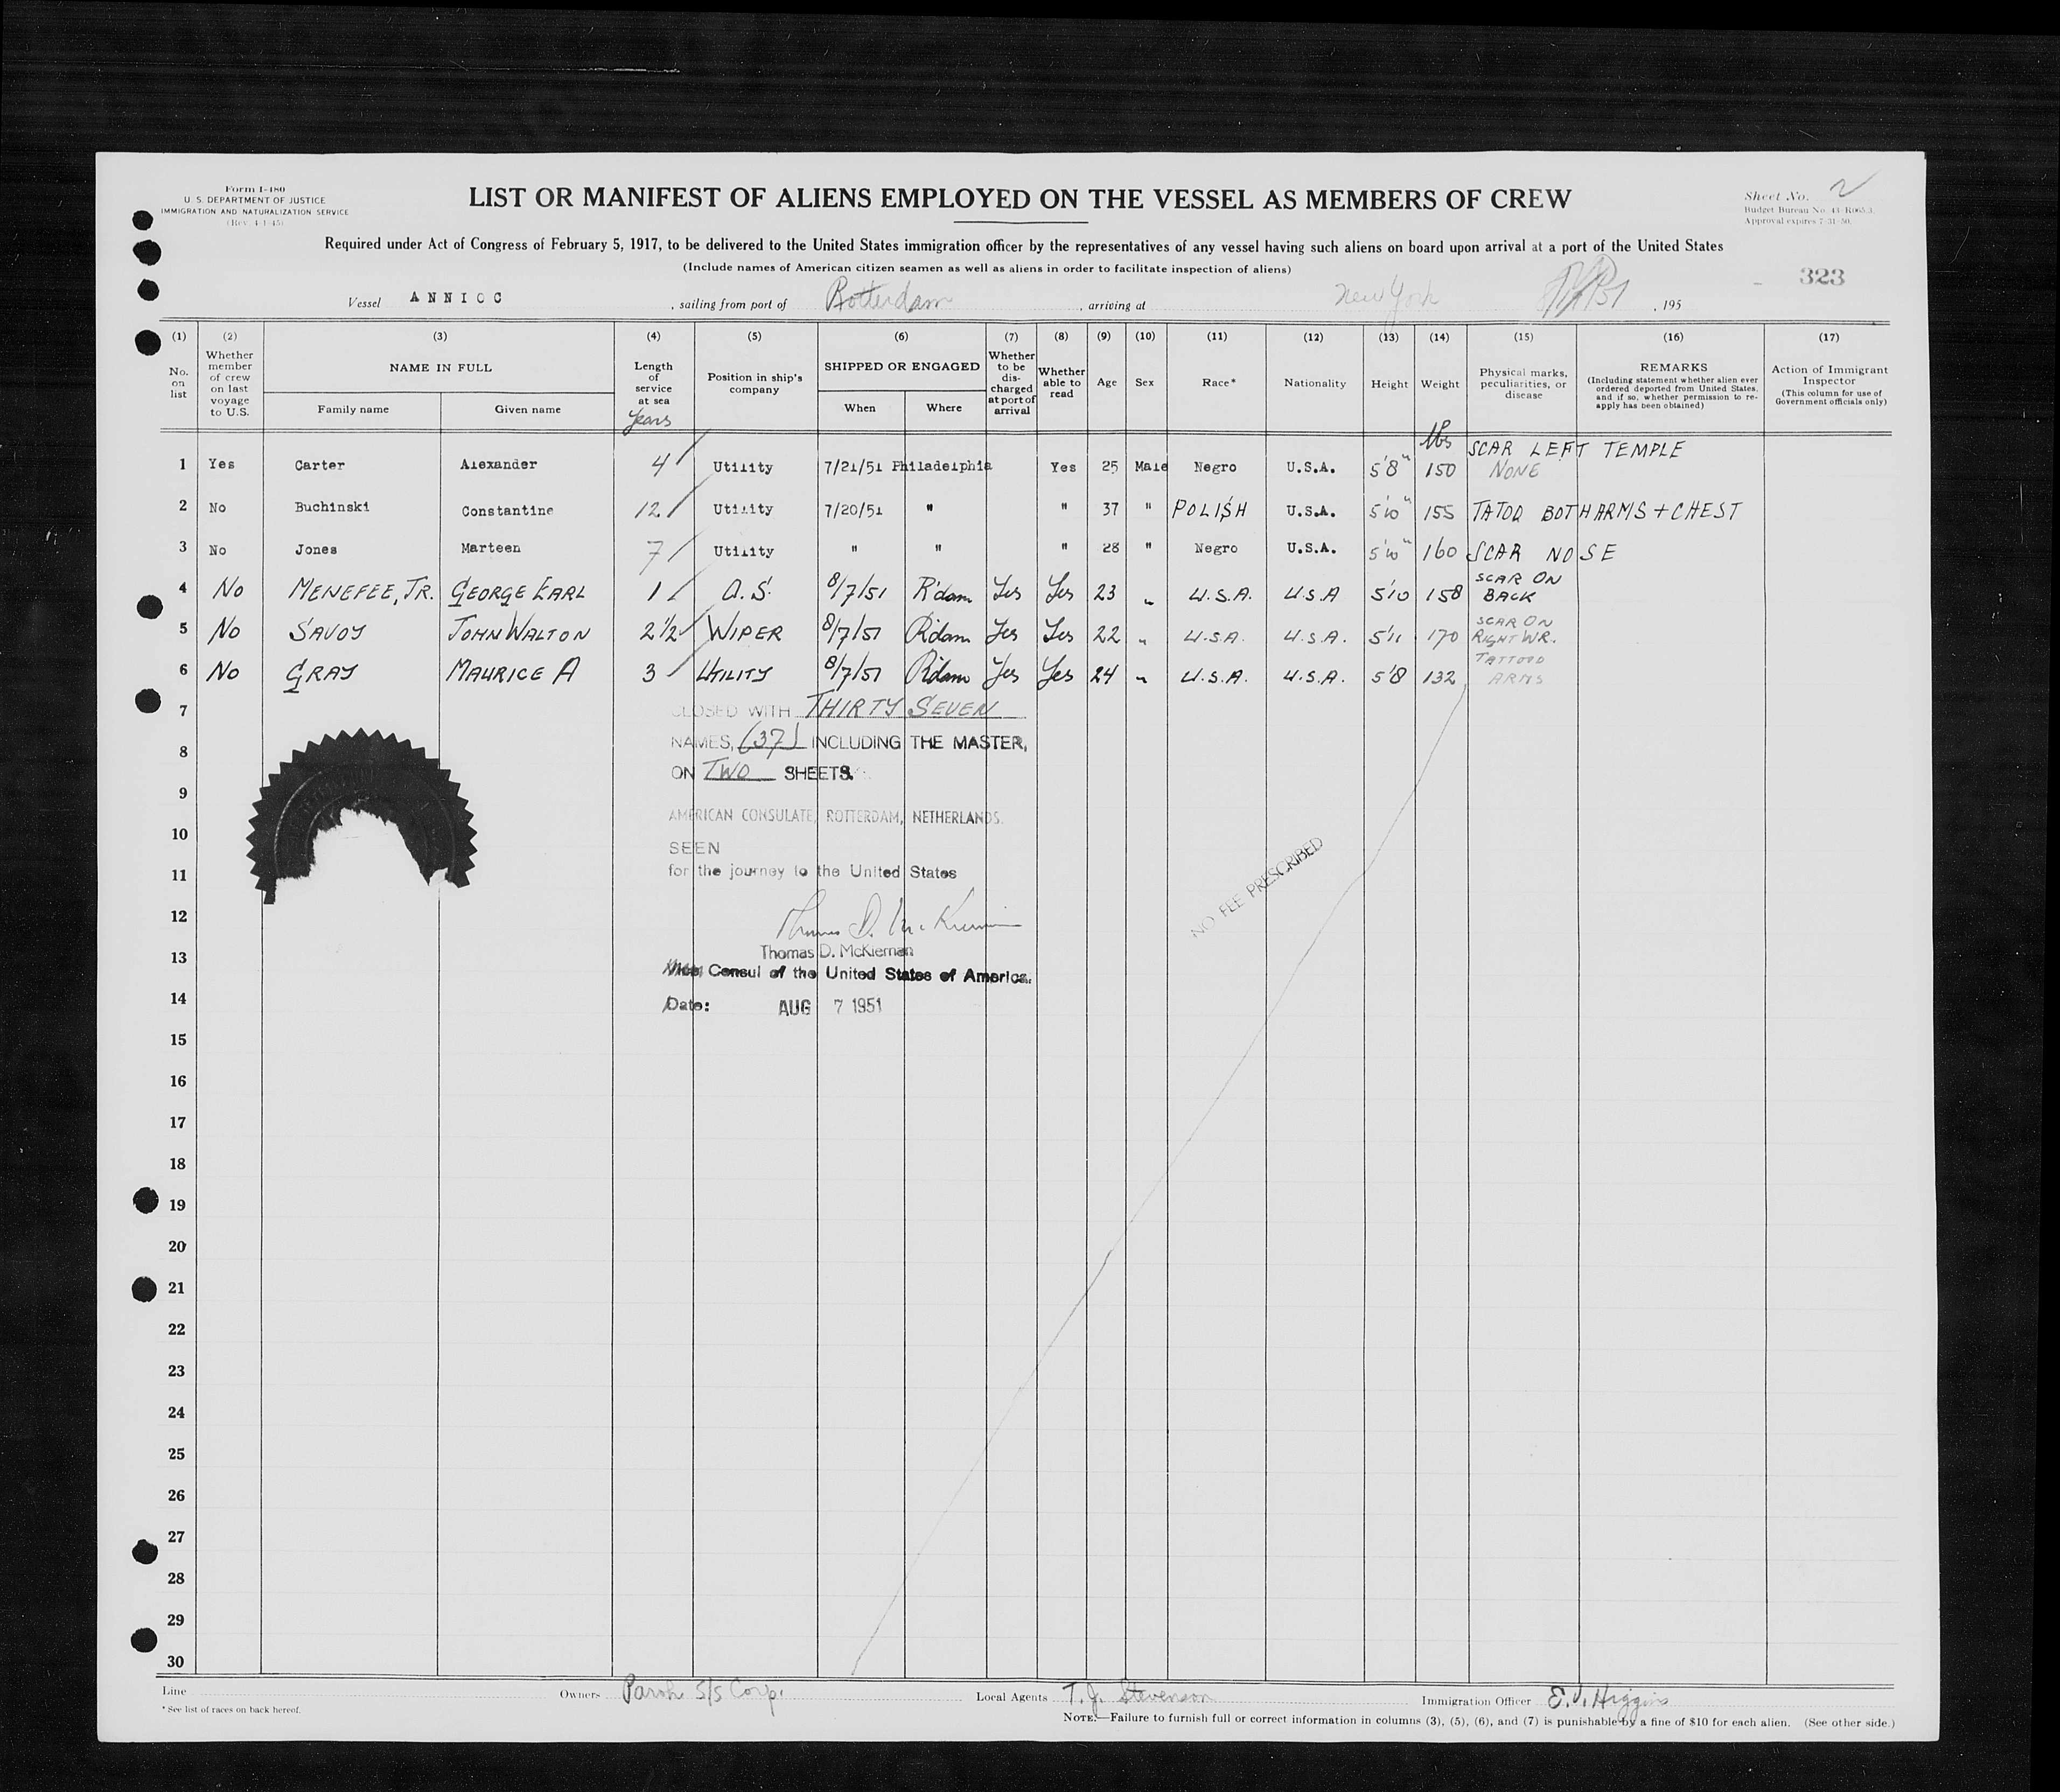 Form I-480
U. S. DEPARTMENT OF JUSTICE
IMMIGRATION AND NATURALIZATION SERVICE
(Rev. 4-1-45)
LIST OR MANIFEST OF ALIENS EMPLOYED ON THE VESSEL AS MEMBERS OF CREW
Sheet No. 2
Budget Bureau No.
Approval expires 7-31-50.
Required under Act of Congress of February 5, 1917, to be delivered to the United States immigration officer by the representatives of any vessel having such aliens on board upon arrival at a port of the United States
(Include names of American citizen seamen as well as aliens in order to facilitate inspection of aliens)
323
Vessel ANNIOC , sailing from port of Rotterdam , arriving at New York , 195
(1) (2) (3) (4) (5) (6) (7) (8) (9) (10) (11) (12) (13) (14) (15) (16) (17)
No. on list
Whether member of crew on last voyage to U.S.
NAME IN FULL
Family name
Given name
Length of service at sea
Years
Position in ship's company
SHIPPED OR ENGAGED
When
Where
Whether to be discharged at port of arrival
Whether able to read
Age
Sex
Race*
Nationality
Height
Weight
lbs
Physical marks, peculiarities, or disease
REMARKS
(Including statement whether alien ever ordered deported from United States, and if so, whether permission to re-apply has been obtained)
Action of Immigrant Inspector
(This column for use of Government officials only)
1 Yes Carter Alexander 4 Utility 7/21/51 Philadelphia Yes 25 Male Negro U.S.A. 5'8" 150 SCAR LEFT TEMPLE NONE
2 No Buchinski Constantine 12 Utility 7/20/51 " " 37 " POLISH U.S.A. 5'10" 155 TATOO BOTH ARMS + CHEST
3 No Jones Marteen 7 Utility " " " 28 " Negro U.S.A. 5'10" 160 SCAR NOSE
4 No MENEFEE, JR. GEORGE EARL 1 O.S. 8/7/51 R'dam Yes Yes 23 " U.S.A. U.S.A 5'10 158 SCAR ON BACK
5 No SAVOY JOHN WALTON 2 1/2 WIPER 8/7/51 R'dam Yes Yes 22 " U.S.A. U.S.A. 5'11 170 SCAR ON RIGHT WR.
6 No GRAY MAURICE A 3 UTILITY 8/7/51 R'dam Yes Yes 24 " U.S.A. U.S.A. 5'8 132 TATTOOD ARMS
7
CLOSED WITH THIRTY SEVEN
8
NAMES, (37) INCLUDING THE MASTER,
ON TWO SHEETS.
9
AMERICAN CONSULATE, ROTTERDAM, NETHERLANDS.
10
SEEN
11
for the journey to the United States
NO FEE PRESCRIBED
12
Thomas D. McKiernan
13
Thomas D. McKiernan
Vice Consul of the United States of America.
14
Date: AUG 7 1951
15
16
17
18
19
20
21
22
23
24
25
26
27
28
29
30
Line Owners S/S Corp. Local Agents T. J. Stevenson Immigration Officer E. J. Higgins
* See list of races on back hereof.
NOTE.—Failure to furnish full or correct information in columns (3), (5), (6), and (7) is punishable by a fine of $10 for each alien. (See other side.)